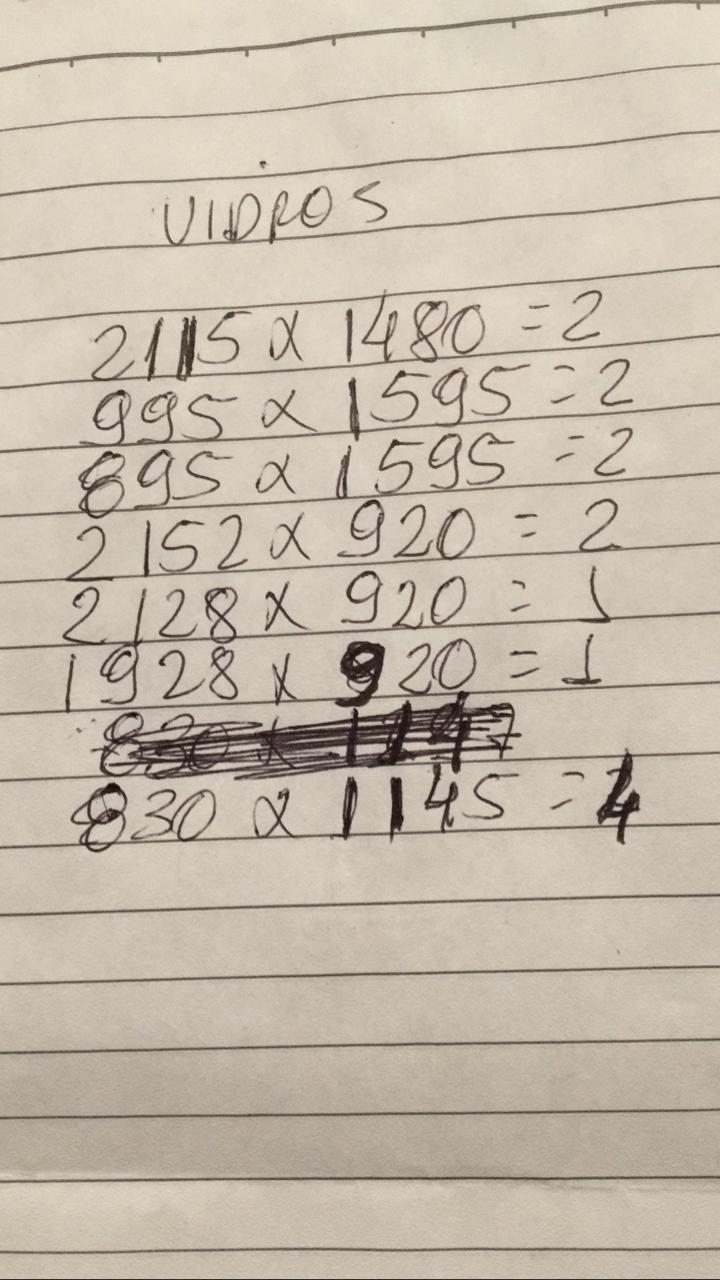 VIDROS
2115 x 1480 = 2
995 x 1595 = 2
895 x 1595 = 2
2152 x 920 = 2
2128 x 920 = 1
1928 x 920 = 1
830 x 1145 = 4